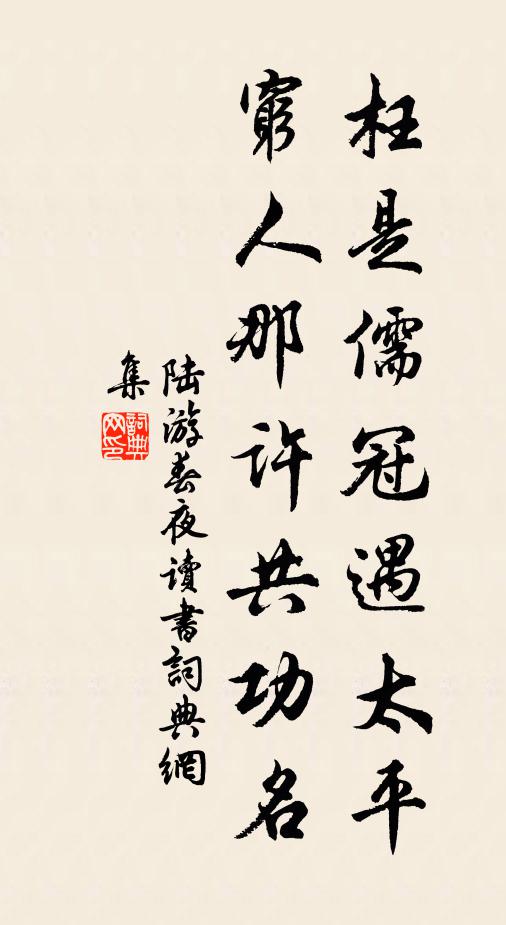 枉是儒冠遇太平
窮人那許共功名
陆游春夜讀書詞典網
集
詞典
网印